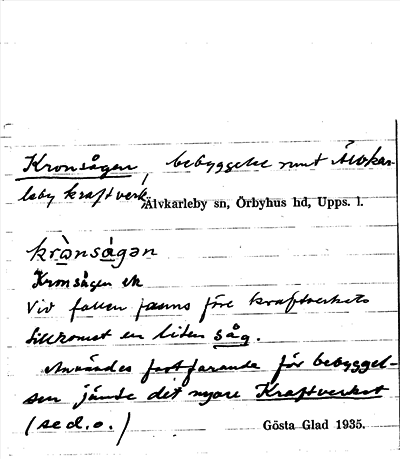 Kronsågen, bebyggelse runt Älvkar-
leby kraftverk,
Älvkarleby sn, Örbyhus hd, Upps. l.
krὼnsågən
Kronsågen ek
Vid fallen fanns före kraftverkets
tillkomst en liten såg.
Användes fortfarande för bebyggel-
sen jämte det nyare Kraftverket
(se d. o.)
Gösta Glad 1935.